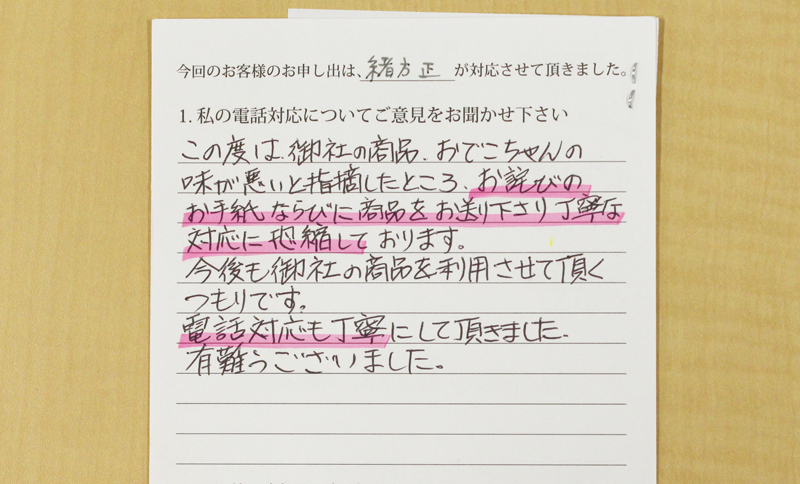 今回のお客様のお申し出は、緒方正が対応させて頂きました。
1. 私の電話対応についてご意見をお聞かせ下さい
この度は、御社の商品、おでこちゃんの
味が悪いと指摘したところ、お詫びの
お手紙ならびに商品をお送り下さり丁寧な
対応に恐縮しております。
今後も御社の商品を利用させて頂く
つもりです。
電話対応も丁寧にして頂きました、
有難うございました。